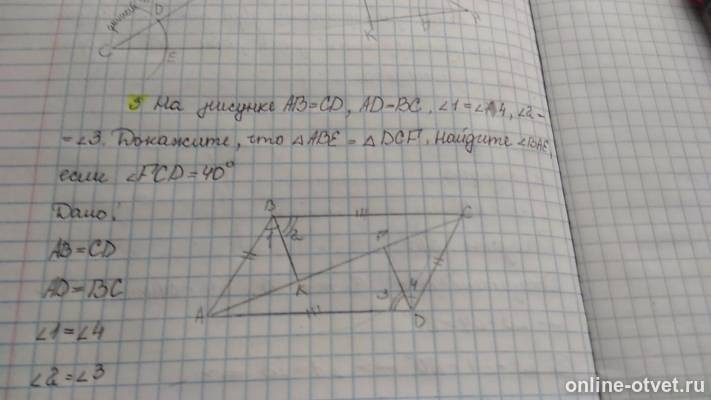 D
C
E
K
D
3 На рисунке AB=CD, AD=BC, ∠1=∠4, ∠2=
=∠3. Докажите, что △ABE = △DCF. Найдите ∠BAE,
если ∠FCD=40°
Дано:
AB=CD
AD=BC
∠1=∠4
∠2=∠3
B
C
1
2
F
K
3
4
A
D
online-otvet.ru